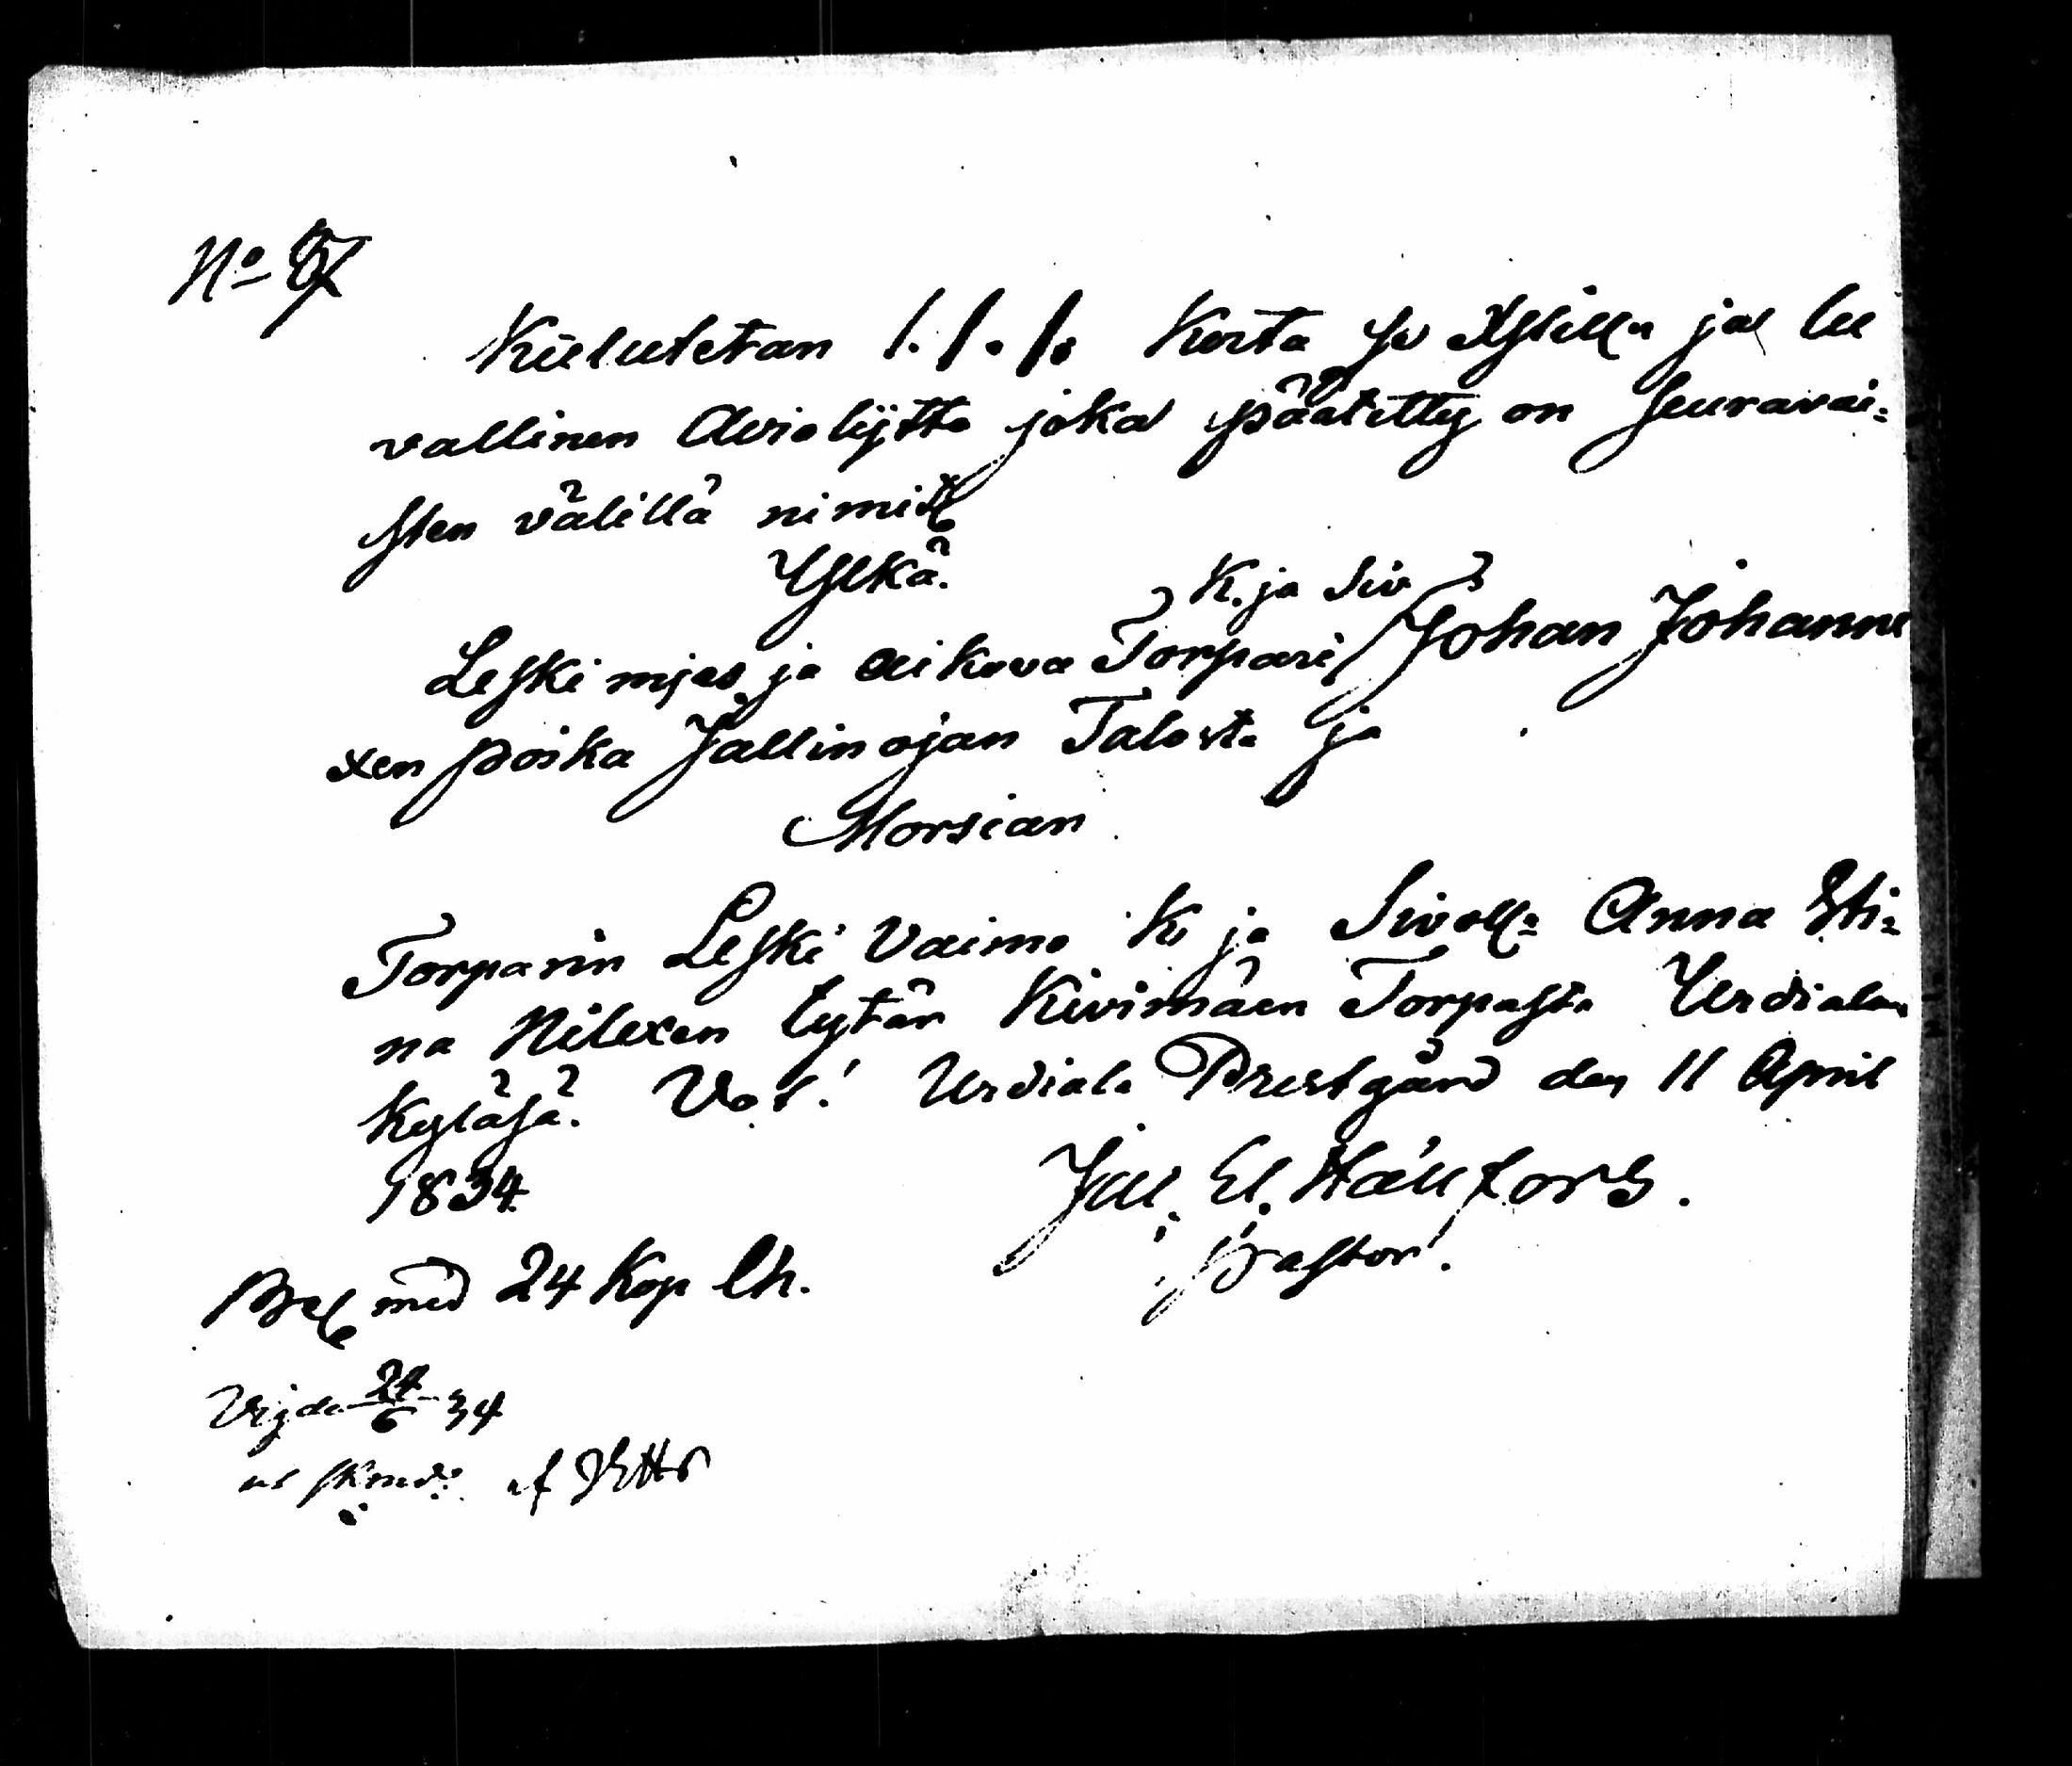 No 67
Kuulutetan 1. 1. 1. Kerta se Xstilln jal lu
vallinen Avioliitto joka päätetty on seuravai=
sten välillä nimitt
Ylkä.
K. ja Siv
Leski mjes ja aikova Torpari Johan Johanne
xen poika Jallinojan Talosta ja
Morsian
Torparin Leski Vaimo K. ja Sivoll: Anna Sti=
na Nilexen tytär Kivimäen Torpasta Urdialan
Kyläsä. Ut. Urdiala Prestgård den 11 April
1834
Jac. El. Hällfors.
Pastor.
Bet med 24 Kop Ch.
Vigde 24/6 34
af